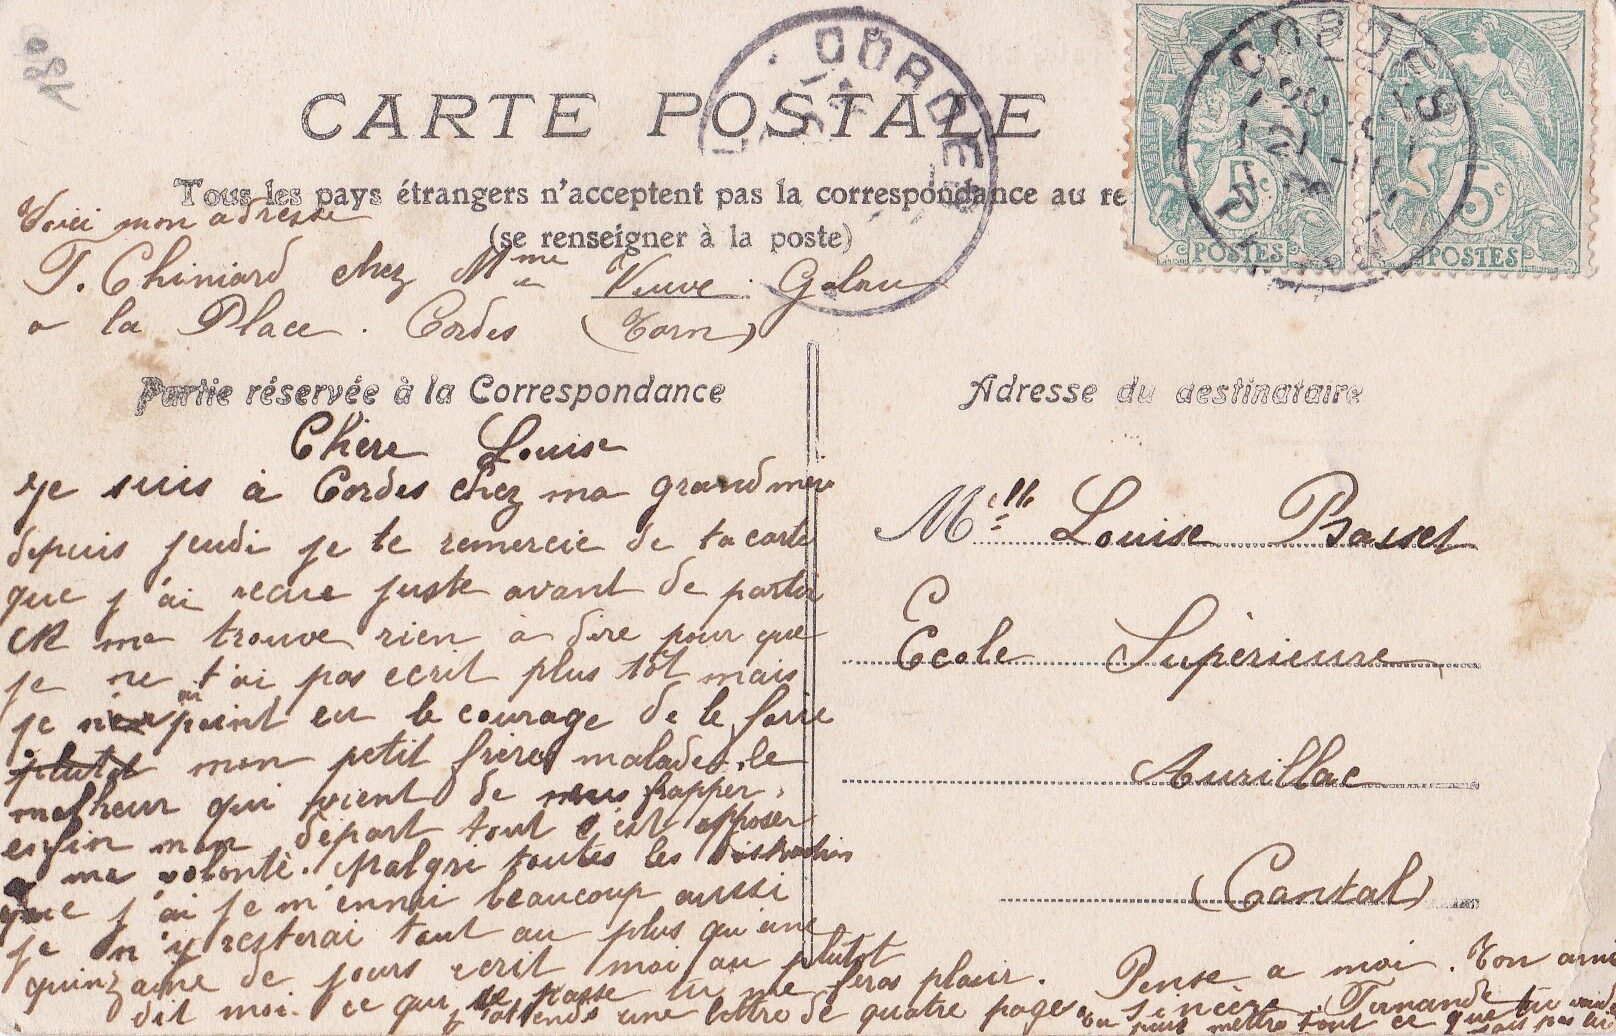 130
CARTE POSTALE
CORDES
CORDES
TARN
5c
POSTES
5c
POSTES
Tous les pays étrangers n'acceptent pas la correspondance au re
(se renseigner à la poste)
Voici mon adresse
F. Chiniard chez Mme Veuve Galau
a la Place. Cordes (Tarn)
Partie réservée à la Correspondance
Adresse du destinataire
Chère Louise
Je suis à Cordes chez ma grand mère
depuis jeudi je te remercie de ta carte
que j'ai recue juste avant de partir
ne trouve rien à dire pour que
je ne t'ai pas ecrit plus tôt mais
je n'ai point eu le courage de le faire
plutot mon petit frère malade, le
malheur qui vient de nous frapper,
enfin mon départ tout c'est opposer
a ma volonté. Malgri toutes les distraction
que j'ai je m'ennui beaucoup aussi
je n'y resterai tout au plus qu'une
quinzaine de jours ecrit moi au plutot
dit moi ce qui se passe tu me feras plaisir. Pense a moi. Ton amie
j'attends une lettre de quatre pages sincère Fernande
tu peux mettre tout ce que tu
Melle Louise Basset
Ecole Supèrieure
Aurillac
(Cantal)